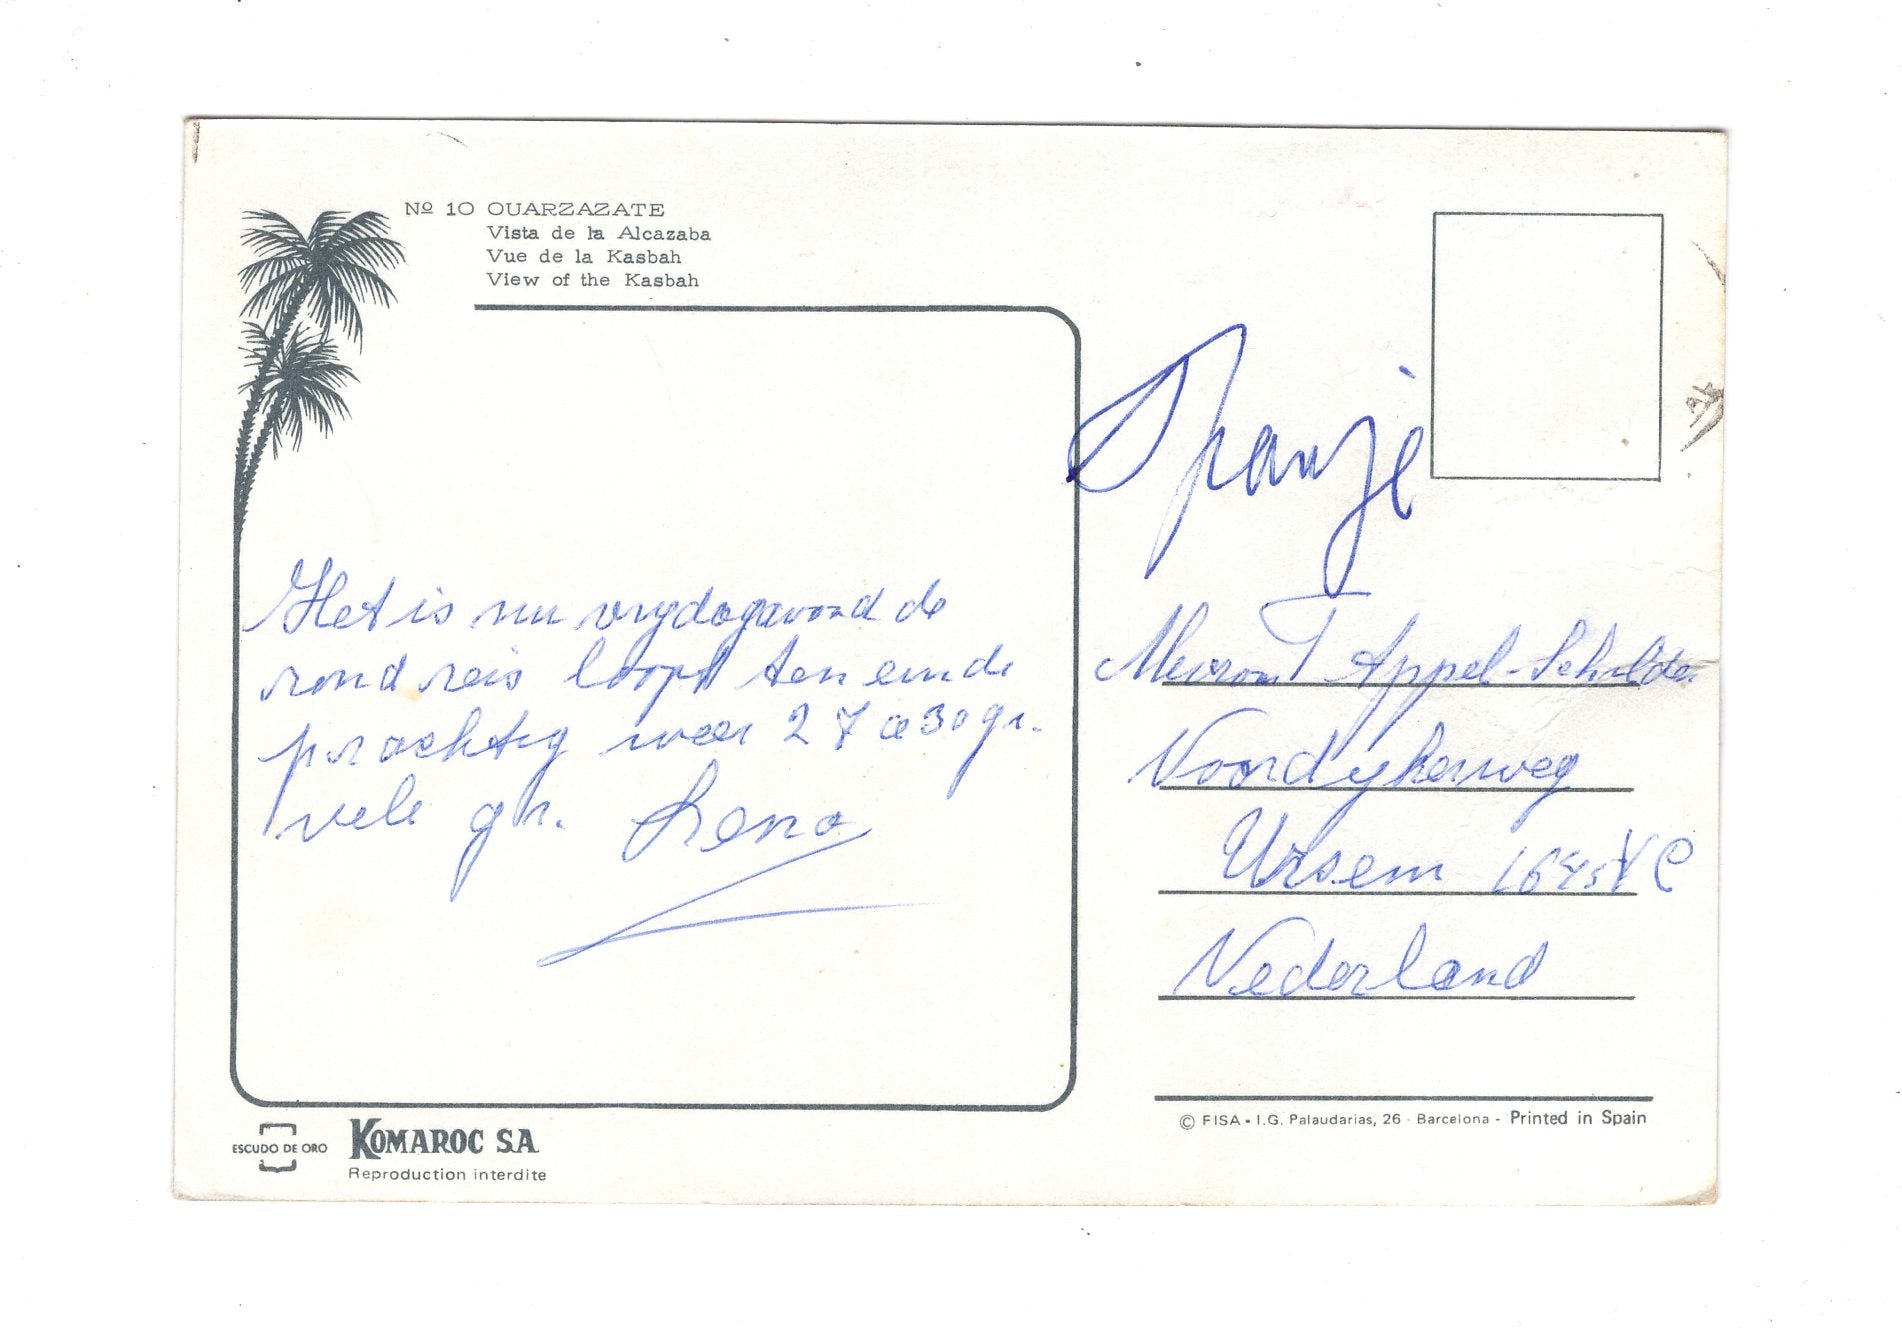 Nº 10 OUARZAZATE
Vista de la Alcazaba
Vue de la Kasbah
View of the Kasbah
Spanje
Het is nu vrydagavond de
rond reis loopt ten einde
prachtig weer 27 a 30 gr.
vele gr. Lena
Mevrouw T Appel-Schilder
Noordykerweg
Ursem 1645 VC
Nederland
© FISA - I.G. Palaudarias, 26 - Barcelona - Printed in Spain
ESCUDO DE ORO
KOMAROC S.A
Reproduction interdite